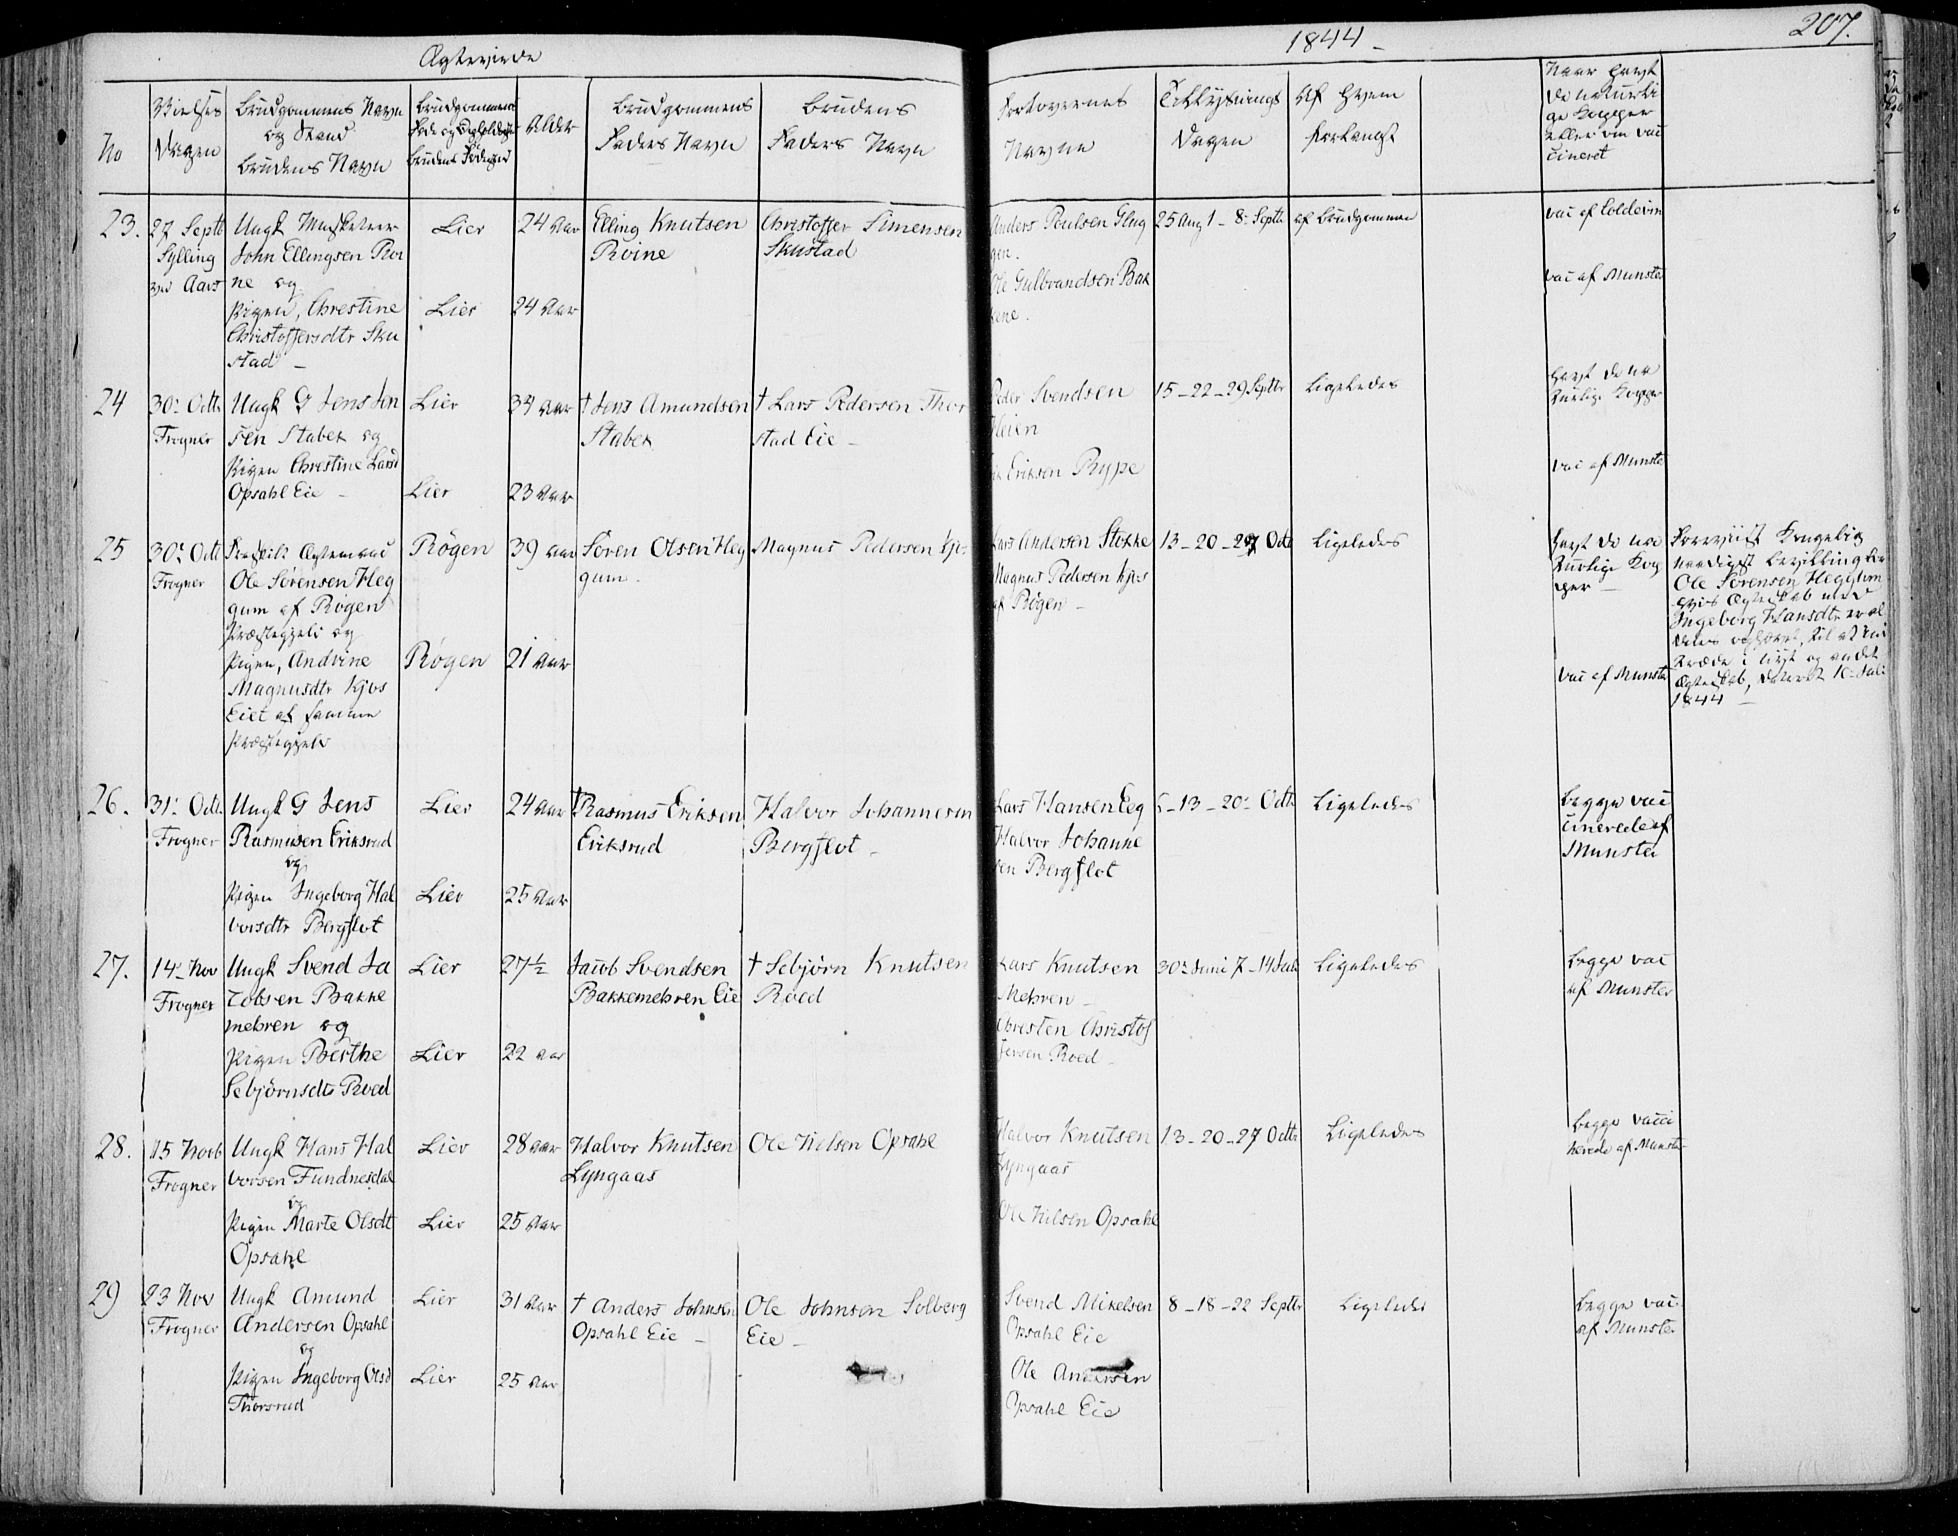 Ægteviede
1844 –
207.
No
Vielses
Dagen
Brudgommens Navn
og Stand
Brudens Navn
Brudgommens
Føde og Opholdsste
Brudens Fødested
Alder
Brudgommens
Faders Navn
Brudens
Faders Navn
Forlovernes
Navne
Tillysnings
Dagen
Af Hvem
forlangt
Naar havt
de naturli
ge Kopper
eller om vac
cineret
23.
27 Septb
Sylling
Ungk Musketeer
John Ellingsen Roi
ne og
Pigen, Christine
Christoffersdtr Sku
stad –
Lier
Lier
24 Aar
24 Aar
Elling Knutsen
Roine
Christoffer Simensen
Skustad
Anders Poulsen Glug
gen.
Ole Gulbrandsen Bak
kene.
25 Aug 1 – 8 Septb
af Brudgommen
vac af Coldevin
vac af Munster
24
30 Octb
Frogner
Ungk G Jens Jen
sen Stabek og
Pigen Christine Larsd
Opsahl Eie –
Lier
Lier
34 Aar
23 Aar
† Jens Amundsen
Stabek
† Lars Pedersen Thor
stad Eie –
Peder Svendsen
Heien
Eriksen Rype
15 – 22 – 29 Septbr
Ligeledes
havt de na
turlige Kopper
vac af Munster
25
30 Octb
Frogner
Ægtemand
Ole Sørensen Heg
gum af Røgen
Præstegjeld og
Pigen, Andrine
Magnusdtr Kjos
Eiet af samme
Præstegjeld
Røgen
Røgen
39 Aar
21 Aar
Søren Olsen Heg
gum.
Magnus Pedersen Kjos
Lars Andersen Stokke
Magnus Pedersen Kjos
af Røgen –
13 – 20 – 27 Octb
Ligeledes
havt de na
turlige Kop
per –
vac af Munster
Foreviist Kongelig
naadigst Bevilling for
Ole Sørensen Heggum
hvis Ægteskab med
Ingeborg Hansdtr er al
deles ophævet, til at ind
træde i nyt og andet
Ægteskab, dateret 10 Juli
1844 –
26.
31 Octb
Frogner
Ungk G Jens
Rasmusen Eriksrud
og
Pigen Ingeborg Hal
vorsdtr Bergflot
Lier
Lier
24 Aar
25 Aar
† Rasmus Eriksen
Eriksrud
Halvor Johannesen
Bergflot –
Lars Hansen Eeg
Halvor Johanne
sen Bergflot
6 – 13 – 20 Octb
Ligeledes
begge vac
cinerede af
Munster
27.
14 Nov
Frogner
Ungk Svend Ja
cobsen Bakke
mehren og
Pigen Berthe
Sebjørnsdtr Roed
Lier
Lier
27½
22 Aar
Jacob Svendsen
Bakkemehren Eie
† Sebjørn Knutsen
Roed
Lars Knutsen
Mehren –
Christen Christof
fersen Roed –
30 Juni 7 – 14 Juli
Ligeledes
begge vac
af Munster
28.
15 Novb
Frogner
Ungk Hans Hal
vorsen Fundnesdal
og
Pigen Marte Olsdt
Opsahl
Lier
Lier
28 Aar
25 Aar
Halvor Knutsen
Lyngaas
Ole Nilsen Opsahl
Halvor Knutsen
Lyngaas
Ole Nilsen Opsahl
13 – 20 – 27 Octb
Ligeledes
begge vacci
nerede af Munster
29
23 Nov
Frogner
Ungk Amund
Andersen Opsahl
og
Pigen Ingeborg Olsd
Thorsrud
Lier
Lier
31 Aar
25 Aar
† Anders Johnsen
Opsahl Eie –
Ole Johnsen Solberg
Eie –
Svend Mikelsen
Opsahl Eie
Ole Andersen
Opsahl Eie
8 – 18 – 22 Septbr
Ligeledes
begge vac
af Munster